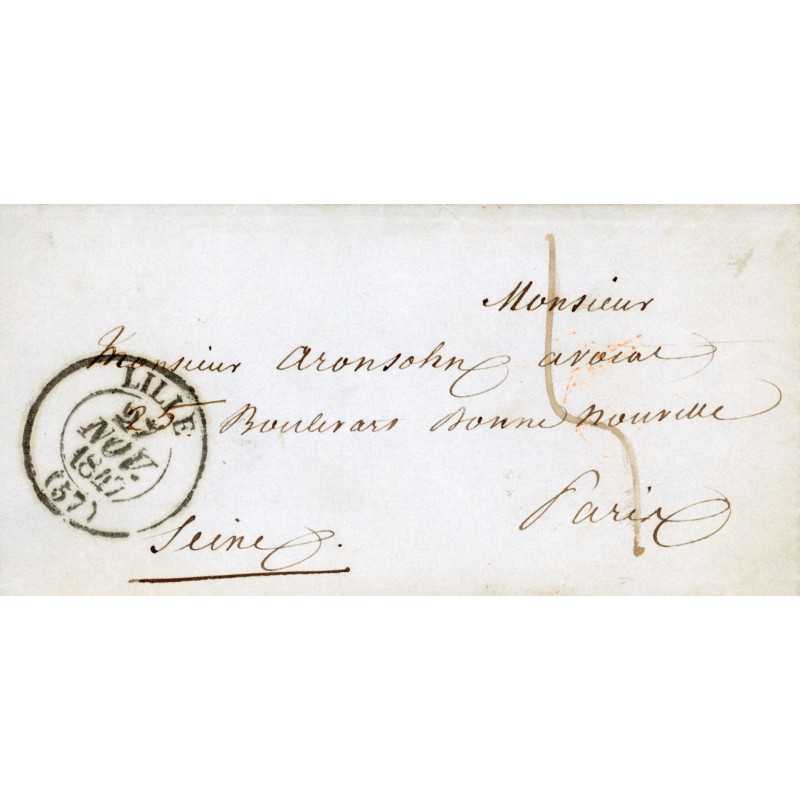 Monsieur
Monsieur Aronsohn avocat
25 Boulevars Bonne Nouvelle
Paris
Seine.
LILLE
NOV.
1847
(57)
5